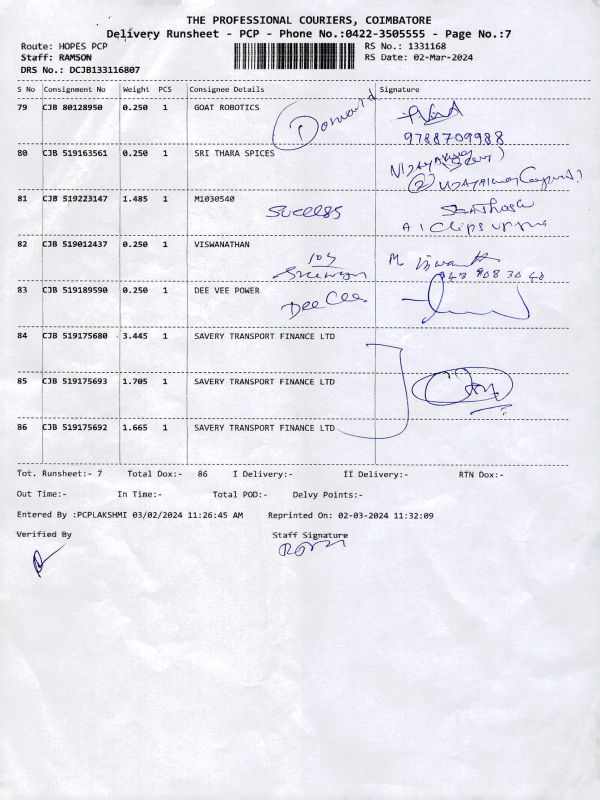 THE PROFESSIONAL COURIERS, COIMBATORE
Delivery Runsheet - PCP - Phone No.:0422-3505555 - Page No.:7
Route: HOPES PCP RS No.: 1331168
Staff: RAMSON RS Date: 02-Mar-2024
DRS No.: DCJB133116807
S No Consignment No Weight PCS Consignee Details Signature
79 CJB 80128950 0.250 1 GOAT ROBOTICS
9788709988
80 CJB 519163561 0.250 1 SRI THARA SPICES
81 CJB 519223147 1.485 1 M1030540
Success
82 CJB 519012437 0.250 1 VISWANATHAN
83 CJB 519189590 0.250 1 DEE VEE POWER
84 CJB 519175680 3.445 1 SAVERY TRANSPORT FINANCE LTD
85 CJB 519175693 1.705 1 SAVERY TRANSPORT FINANCE LTD
86 CJB 519175692 1.665 1 SAVERY TRANSPORT FINANCE LTD
Tot. Runsheet:- 7 Total Dox:- 86 I Delivery:- II Delivery:- RTN Dox:-
Out Time:- In Time:- Total POD:- Delvy Points:-
Entered By :PCPLAKSHMI 03/02/2024 11:26:45 AM Reprinted On: 02-03-2024 11:32:09
Verified By Staff Signature